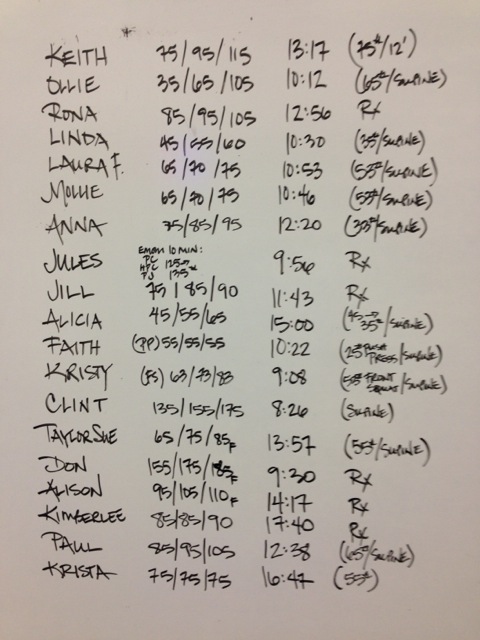 KEITH 75/95/115 13:17 (75#/12')
OLLIE 35/65/105 10:12 (65#/SUPINE)
RONA 85/95/105 12:56 Rx
LINDA 45/55/60 10:30 (35#/SUPINE)
LAURA F. 65/70/75 10:53 (55#/SUPINE)
MOLLIE 65/70/75 10:46 (55#/SUPINE)
ANNA 75/85/95 12:20 (30#/SUPINE)
EMOM 10 MIN:
PC
HPC 125#
PJ 135#
JULES 9:56 Rx
JILL 75/85/90 11:43 Rx
ALICIA 45/55/65 15:00 (45→35#/SUPINE)
FAITH (PP) 55/55/55 10:22 (25# PUSH PRESS/SUPINE)
KRISTY (FS) 63/73/83 9:08 (55# FRONT SQUAT/SUPINE)
CLINT 135/155/175 8:26 (SUPINE)
TAYLOR SUE 65/75/85F 13:57 (55#/SUPINE)
DON 155/175/185F 9:30 Rx
ALISON 95/105/110F 14:17 Rx
KIMBERLEE 85/85/90 17:40 Rx
PAUL 85/95/105 12:38 (65#/SUPINE)
KRISTA 75/75/75 16:47 (55#)